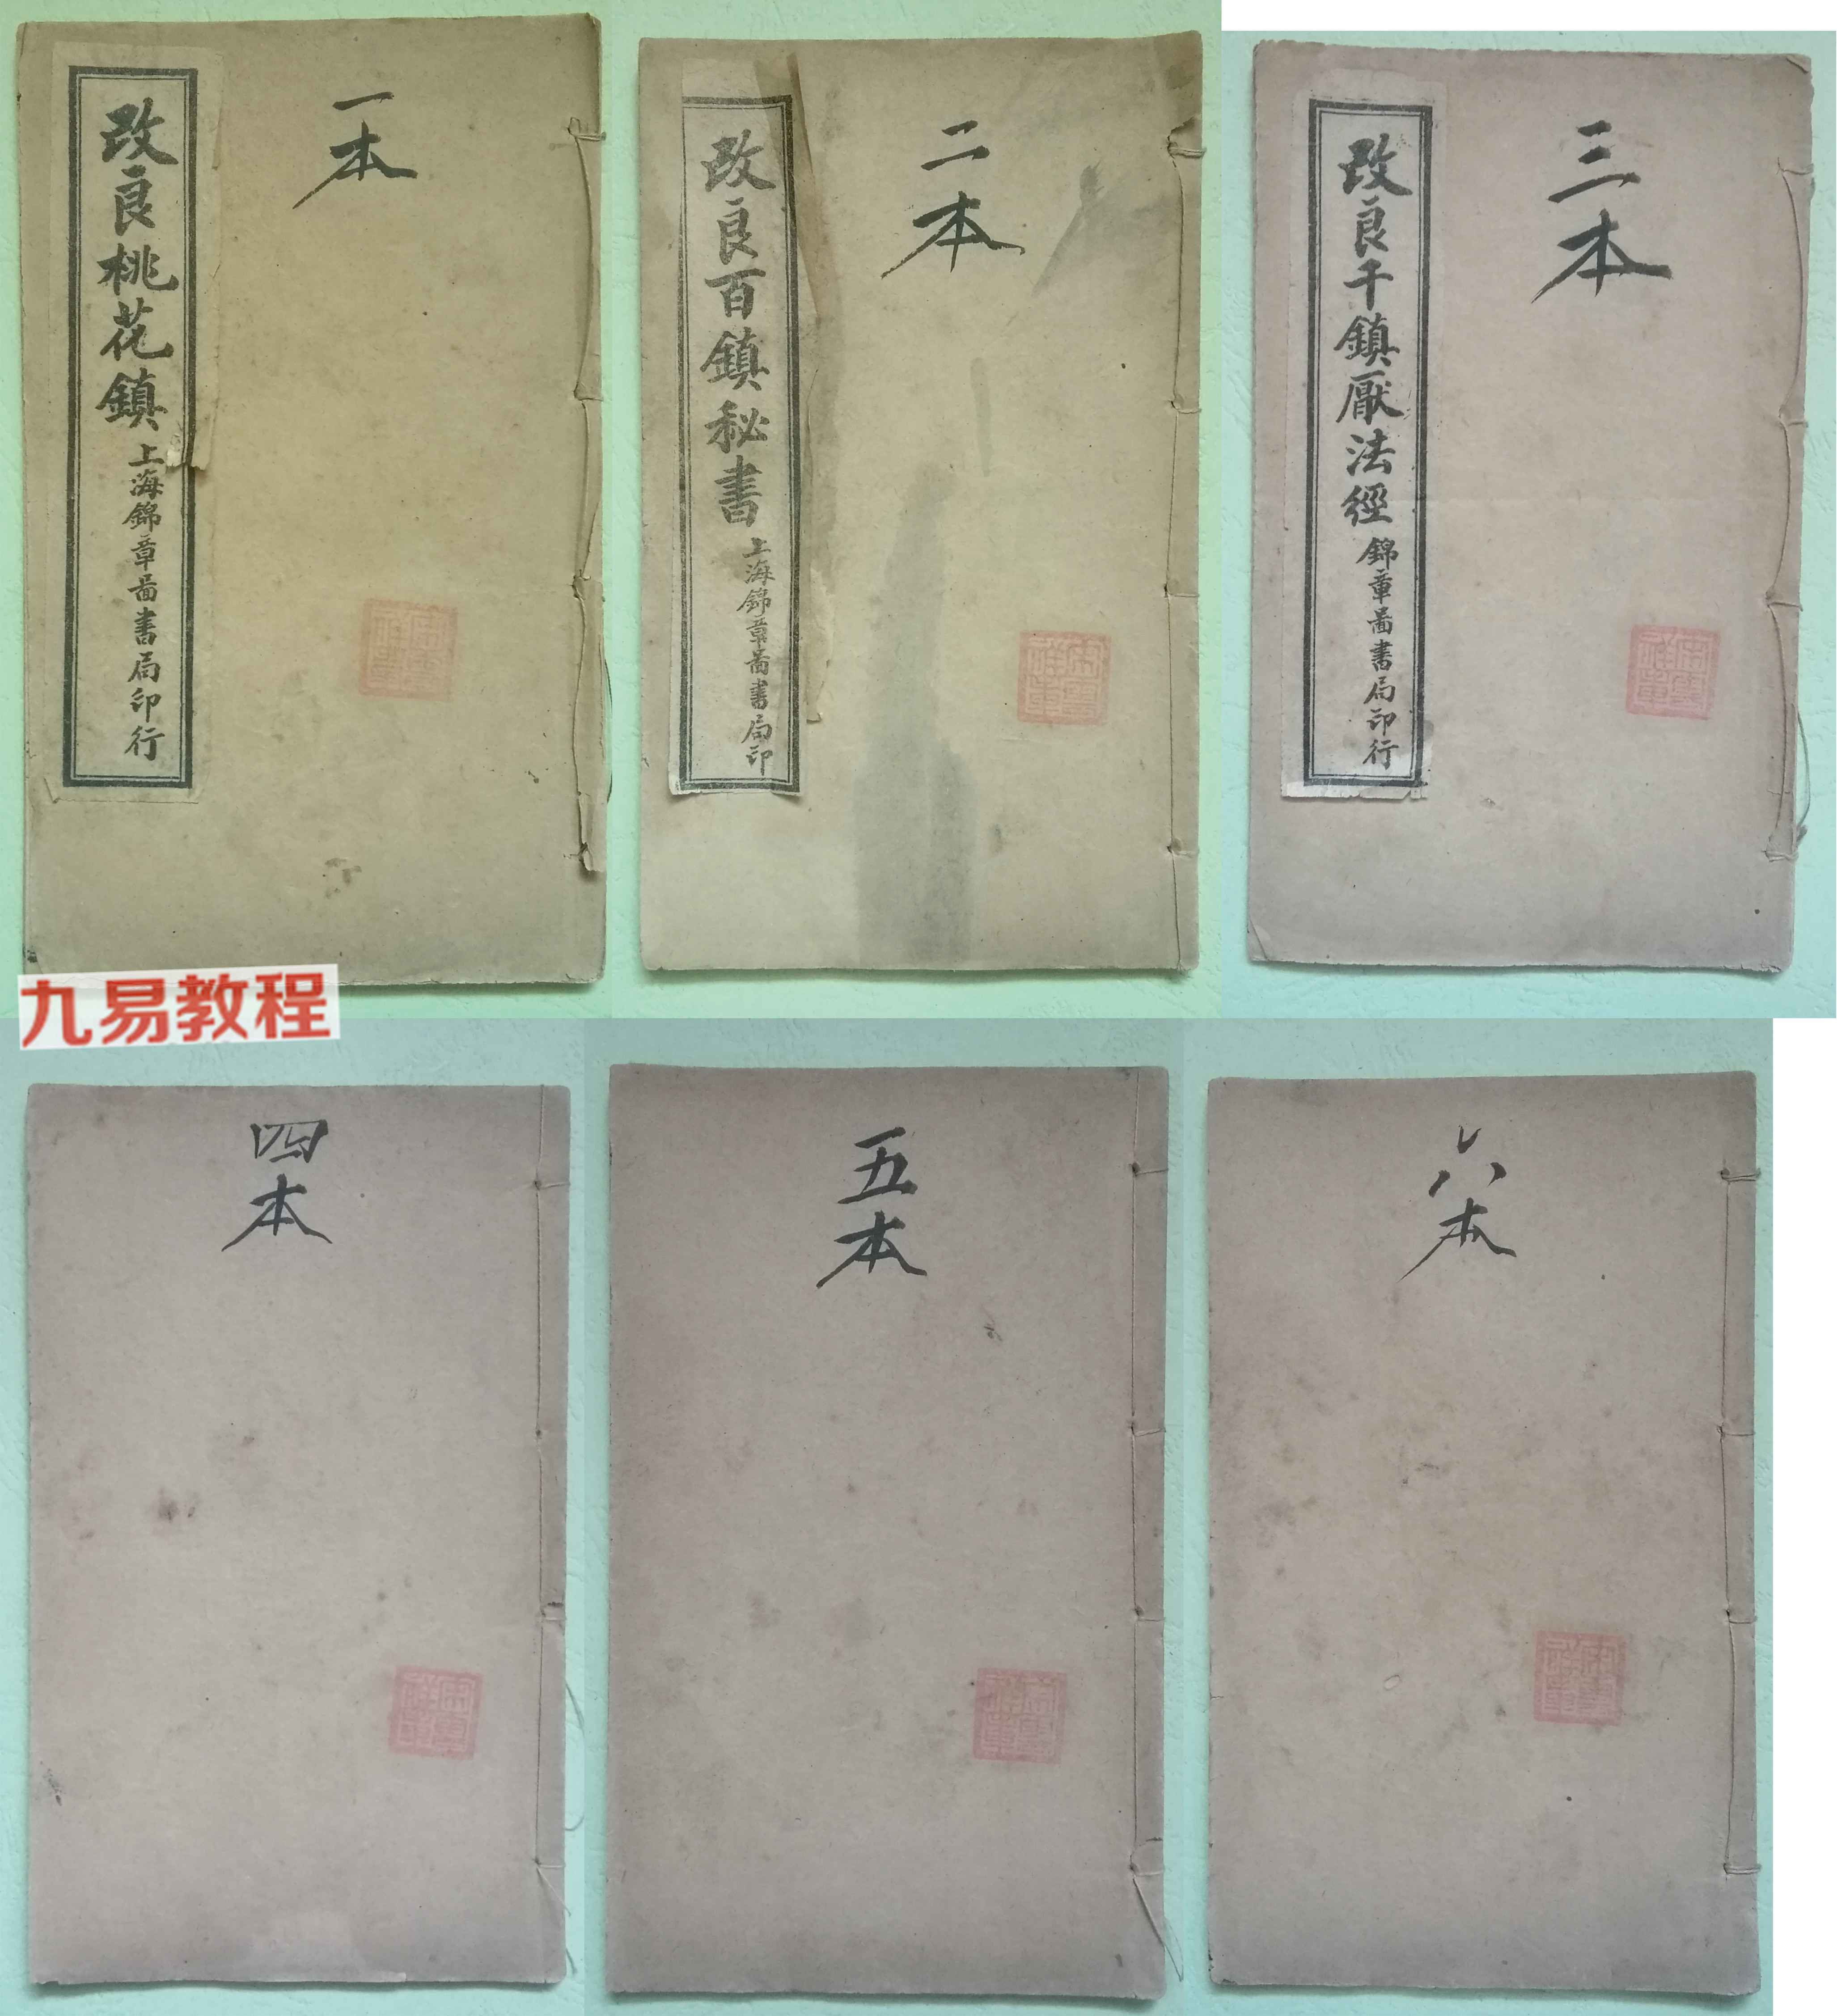 一本
改良桃花鎮
上海錦章啚書局印行
二本
改良百鎮秘書
上海錦章啚書局印
三本
改良千鎮厭法經
錦章啚書局印行
九易教程
四本
五本
六本